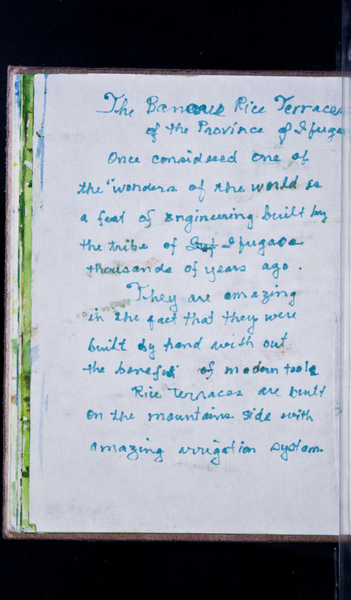 The Banaue Rice Terraces
of the Province of Ifugao
Once considered one of
the "wonders of the world as
a feat of engineering built by
the tribe of Ifugaos
thousands of years ago.
They are amazing
in the fact that they were
built by hand with out
the benefit of modern tools
Rice Terraces are built
on the mountains side with
amazing irrigation system.